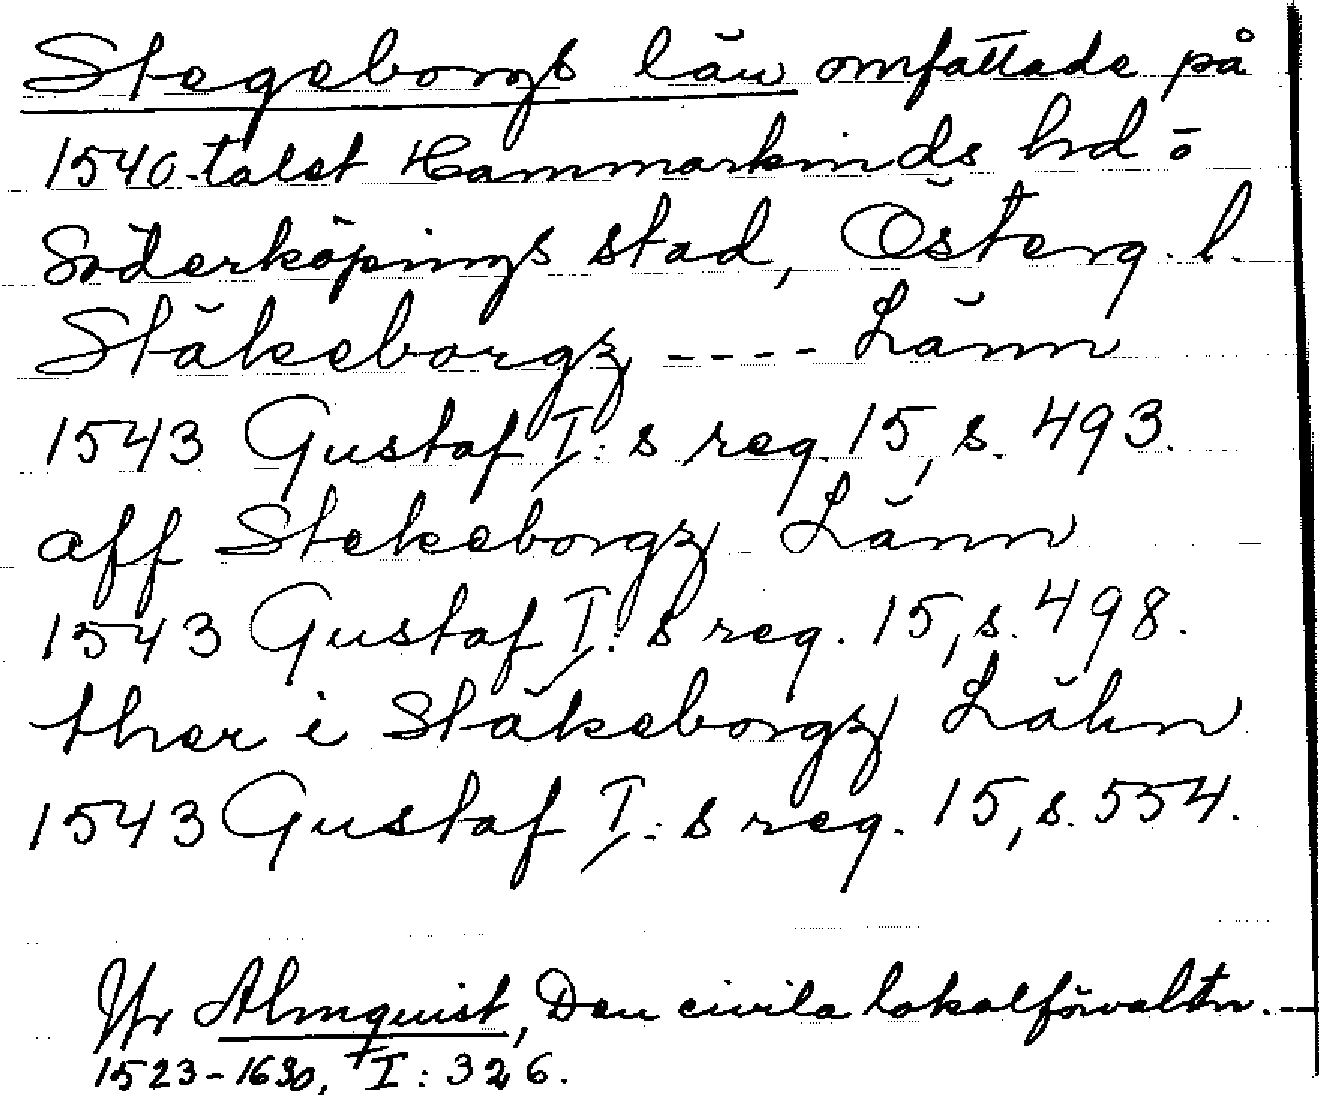 Stegeborgs län omfattade på
1540-talet Hammarkinds hd o
Söderköpings stad, Österg. l.
Stäkeborgz ---- Länn
1543 Gustaf I:s reg. 15, s. 493.
aff Stekeborgz Länn
1543 Gustaf I:s reg. 15, s. 498.
ther i Stäkeborgz Lähn
1543 Gustaf I:s reg. 15, s. 554.
Jfr Almquist, Den civila lokalförvaltn. --
1523-1630, I: 326.